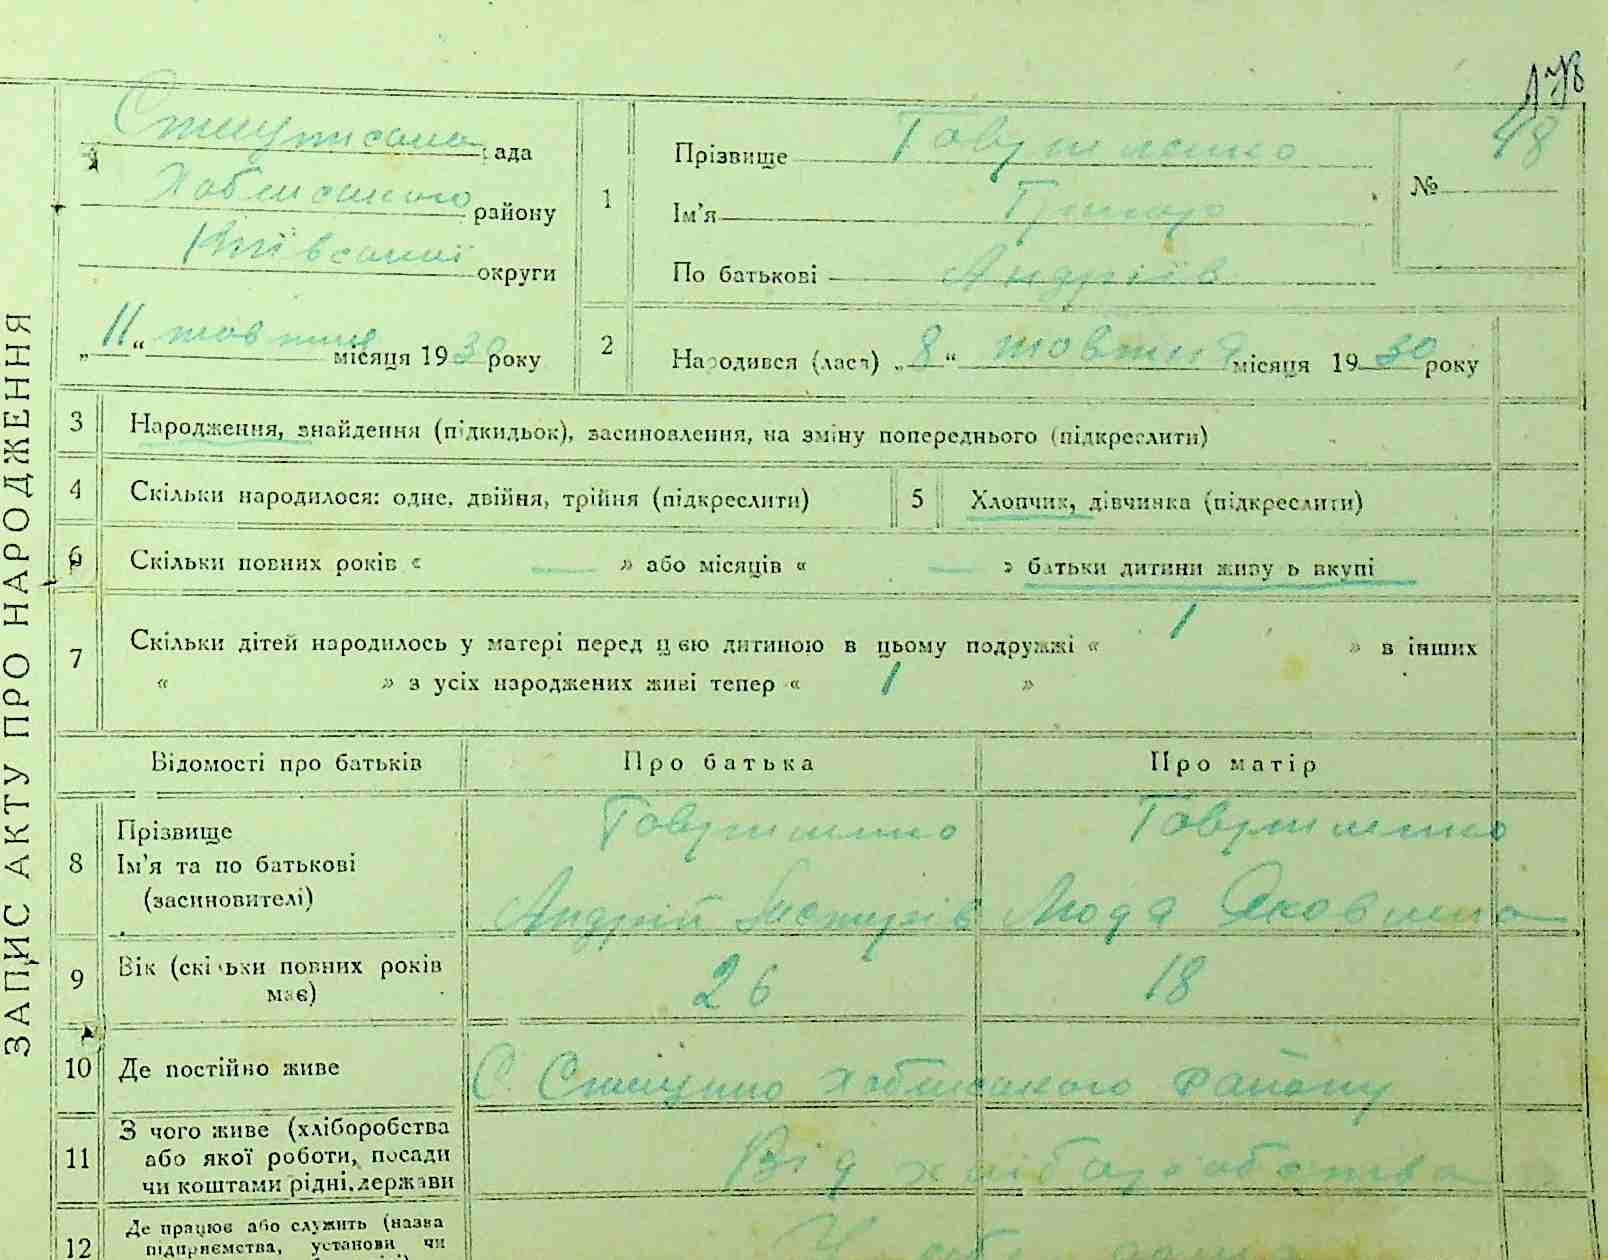 178
рада
Хабенського району
Київської округи
„11“ жовтня місяця 1930 року
1
Прізвище
Ім’я Григор
По батькові Андріїв
№ 48
2
Народився (лася) „8“ жовтня місяця 1930 року
ЗАПИС АКТУ ПРО НАРОДЖЕННЯ
3 Народження, знайдення (підкидьок), засиновлення, на зміну попереднього (підкреслити)
4 Скільки народилося: одне, двійня, трійня (підкреслити)
5 Хлопчик, дівчинка (підкреслити)
6 Скільки повних років « — » або місяців « — » батьки дитини живуть вкупі
7 Скільки дітей народилось у матері перед цією дитиною в цьому подружжі « 1 » в інших
« » з усіх народжених живі тепер « 1 »
Відомості про батьків Про батька Про матір
8 Прізвище
Ім’я та по батькові
(засиновителі)
Андрій Яковлена
9 Вік (скільки повних років
має) 26 18
10 Де постійно живе С. Хабенського району
11 З чого живе (хліборобства
або якої роботи, посади
чи коштами рідні, держави
Від хліборобства
12 Де працює або служить (назва
підприємства, установи чи
У себе дома